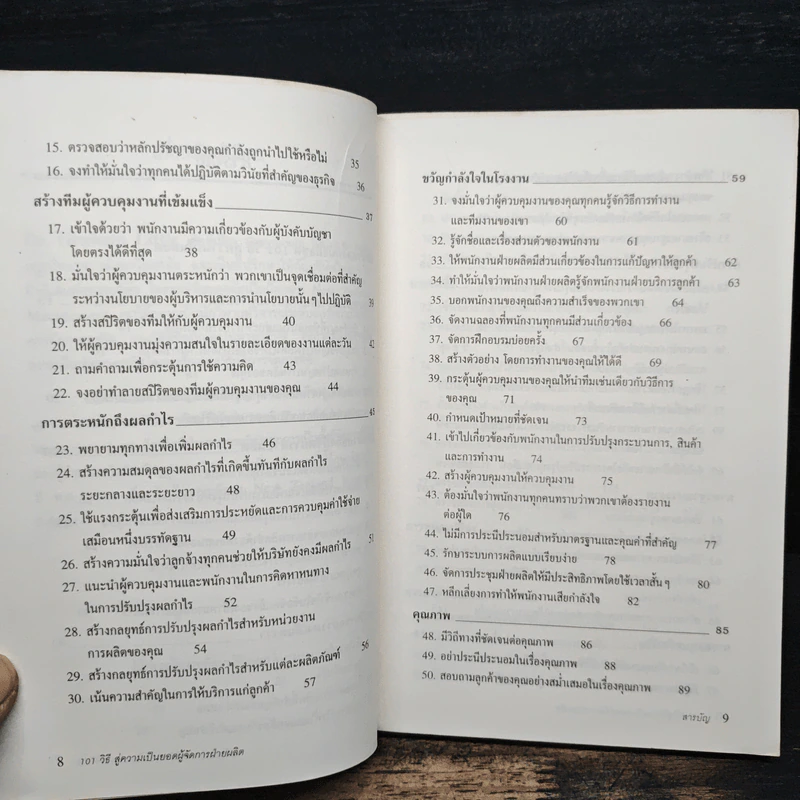 15. ตรวจสอบว่าหลักปรัชญาของคุณกำลังถูกนำไปใช้หรือไม่ 35
16. จงทำให้มั่นใจว่าทุกคนได้ปฏิบัติตามวินัยที่สำคัญของธุรกิจ 36
สร้างทีมผู้ควบคุมงานที่เข้มแข็ง 37
17. เข้าใจด้วยว่า พนักงานมีความเกี่ยวข้องกับผู้บังคับบัญชา
โดยตรงได้ดีที่สุด 38
18. มั่นใจว่าผู้ควบคุมงานตระหนักว่า พวกเขาเป็นจุดเชื่อมต่อที่สำคัญ
ระหว่างนโยบายของผู้บริหารและการนำนโยบายนั้นๆ ไปปฏิบัติ 39
19. สร้างสปิริตของทีมให้กับผู้ควบคุมงาน 40
20. ให้ผู้ควบคุมงานมุ่งความสนใจในรายละเอียดของงานแต่ละวัน 42
21. ถามคำถามเพื่อกระตุ้นการใช้ความคิด 43
22. จงอย่าทำลายสปิริตของทีมผู้ควบคุมงานของคุณ 44
การตระหนักถึงผลกำไร 45
23. พยายามทุกทางเพื่อเพิ่มผลกำไร 46
24. สร้างความสมดุลของผลกำไรที่เกิดขึ้นทันทีกับผลกำไร
ระยะกลางและระยะยาว 48
25. ใช้แรงกระตุ้นเพื่อส่งเสริมการประหยัดและการควบคุมค่าใช้จ่าย
เสมือนหนึ่งบรรทัดฐาน 49
26. สร้างความมั่นใจว่าลูกจ้างทุกคนช่วยให้บริษัทยังคงมีผลกำไร 51
27. แนะนำผู้ควบคุมงานและพนักงานในการคิดหาหนทาง
ในการปรับปรุงผลกำไร 52
28. สร้างกลยุทธ์การปรับปรุงผลกำไรสำหรับหน่วยงาน
การผลิตของคุณ 54
29. สร้างกลยุทธ์การปรับปรุงผลกำไรสำหรับแต่ละผลิตภัณฑ์ 56
30. เน้นความสำคัญในการให้บริการแก่ลูกค้า 57
8 101 วิธี สู่ความเป็นยอดผู้จัดการฝ่ายผลิต
ขวัญกำลังใจในโรงงาน 59
31. จงมั่นใจว่าผู้ควบคุมงานของคุณทุกคนรู้จักวิธีการทำงาน
และทีมงานของเขา 60
32. รู้จักชื่อและเรื่องส่วนตัวของพนักงาน 61
33. ให้พนักงานฝ่ายผลิตมีส่วนเกี่ยวข้องในการแก้ปัญหาให้ลูกค้า 62
34. ทำให้มั่นใจว่าพนักงานฝ่ายผลิตรู้จักพนักงานฝ่ายบริการลูกค้า 63
35. บอกพนักงานของคุณถึงความสำเร็จของพวกเขา 64
36. จัดงานฉลองที่พนักงานทุกคนมีส่วนเกี่ยวข้อง 66
37. จัดการฝึกอบรมบ่อยครั้ง 67
38. สร้างตัวอย่าง โดยการทำงานของคุณให้ได้ดี 69
39. กระตุ้นผู้ควบคุมงานของคุณให้นำทีมเช่นเดียวกับวิธีการ
ของคุณ 71
40. กำหนดเป้าหมายที่ชัดเจน 73
41. เข้าไปเกี่ยวข้องกับพนักงานในการปรับปรุงกระบวนการ, สินค้า
และการทำงาน 74
42. สร้างผู้ควบคุมงานให้ควบคุมงาน 75
43. ต้องมั่นใจว่าพนักงานทุกคนทราบว่าพวกเขาต้องรายงาน
ต่อผู้ใด 76
44. ไม่มีการประนีประนอมสำหรับมาตรฐานและคุณค่าที่สำคัญ 77
45. รักษาระบบการผลิตแบบเรียบง่าย 78
46. จัดการประชุมฝ่ายผลิตให้มีประสิทธิภาพโดยใช้เวลาสั้นๆ 80
47. หลีกเลี่ยงการทำให้พนักงานเสียกำลังใจ 82
คุณภาพ 85
48. มีวิถีทางที่ชัดเจนต่อคุณภาพ 86
49. อย่าประนีประนอมในเรื่องคุณภาพ 88
50. สอบถามลูกค้าของคุณอย่างสม่ำเสมอในเรื่องคุณภาพ 89
สารบัญ 9